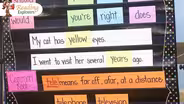 Reading
Explorers
would
you're
right
does
My cat has yellow eyes.
I went to visit her several years ago.
Common
tele means far off, afar, at a distance
telephone
television